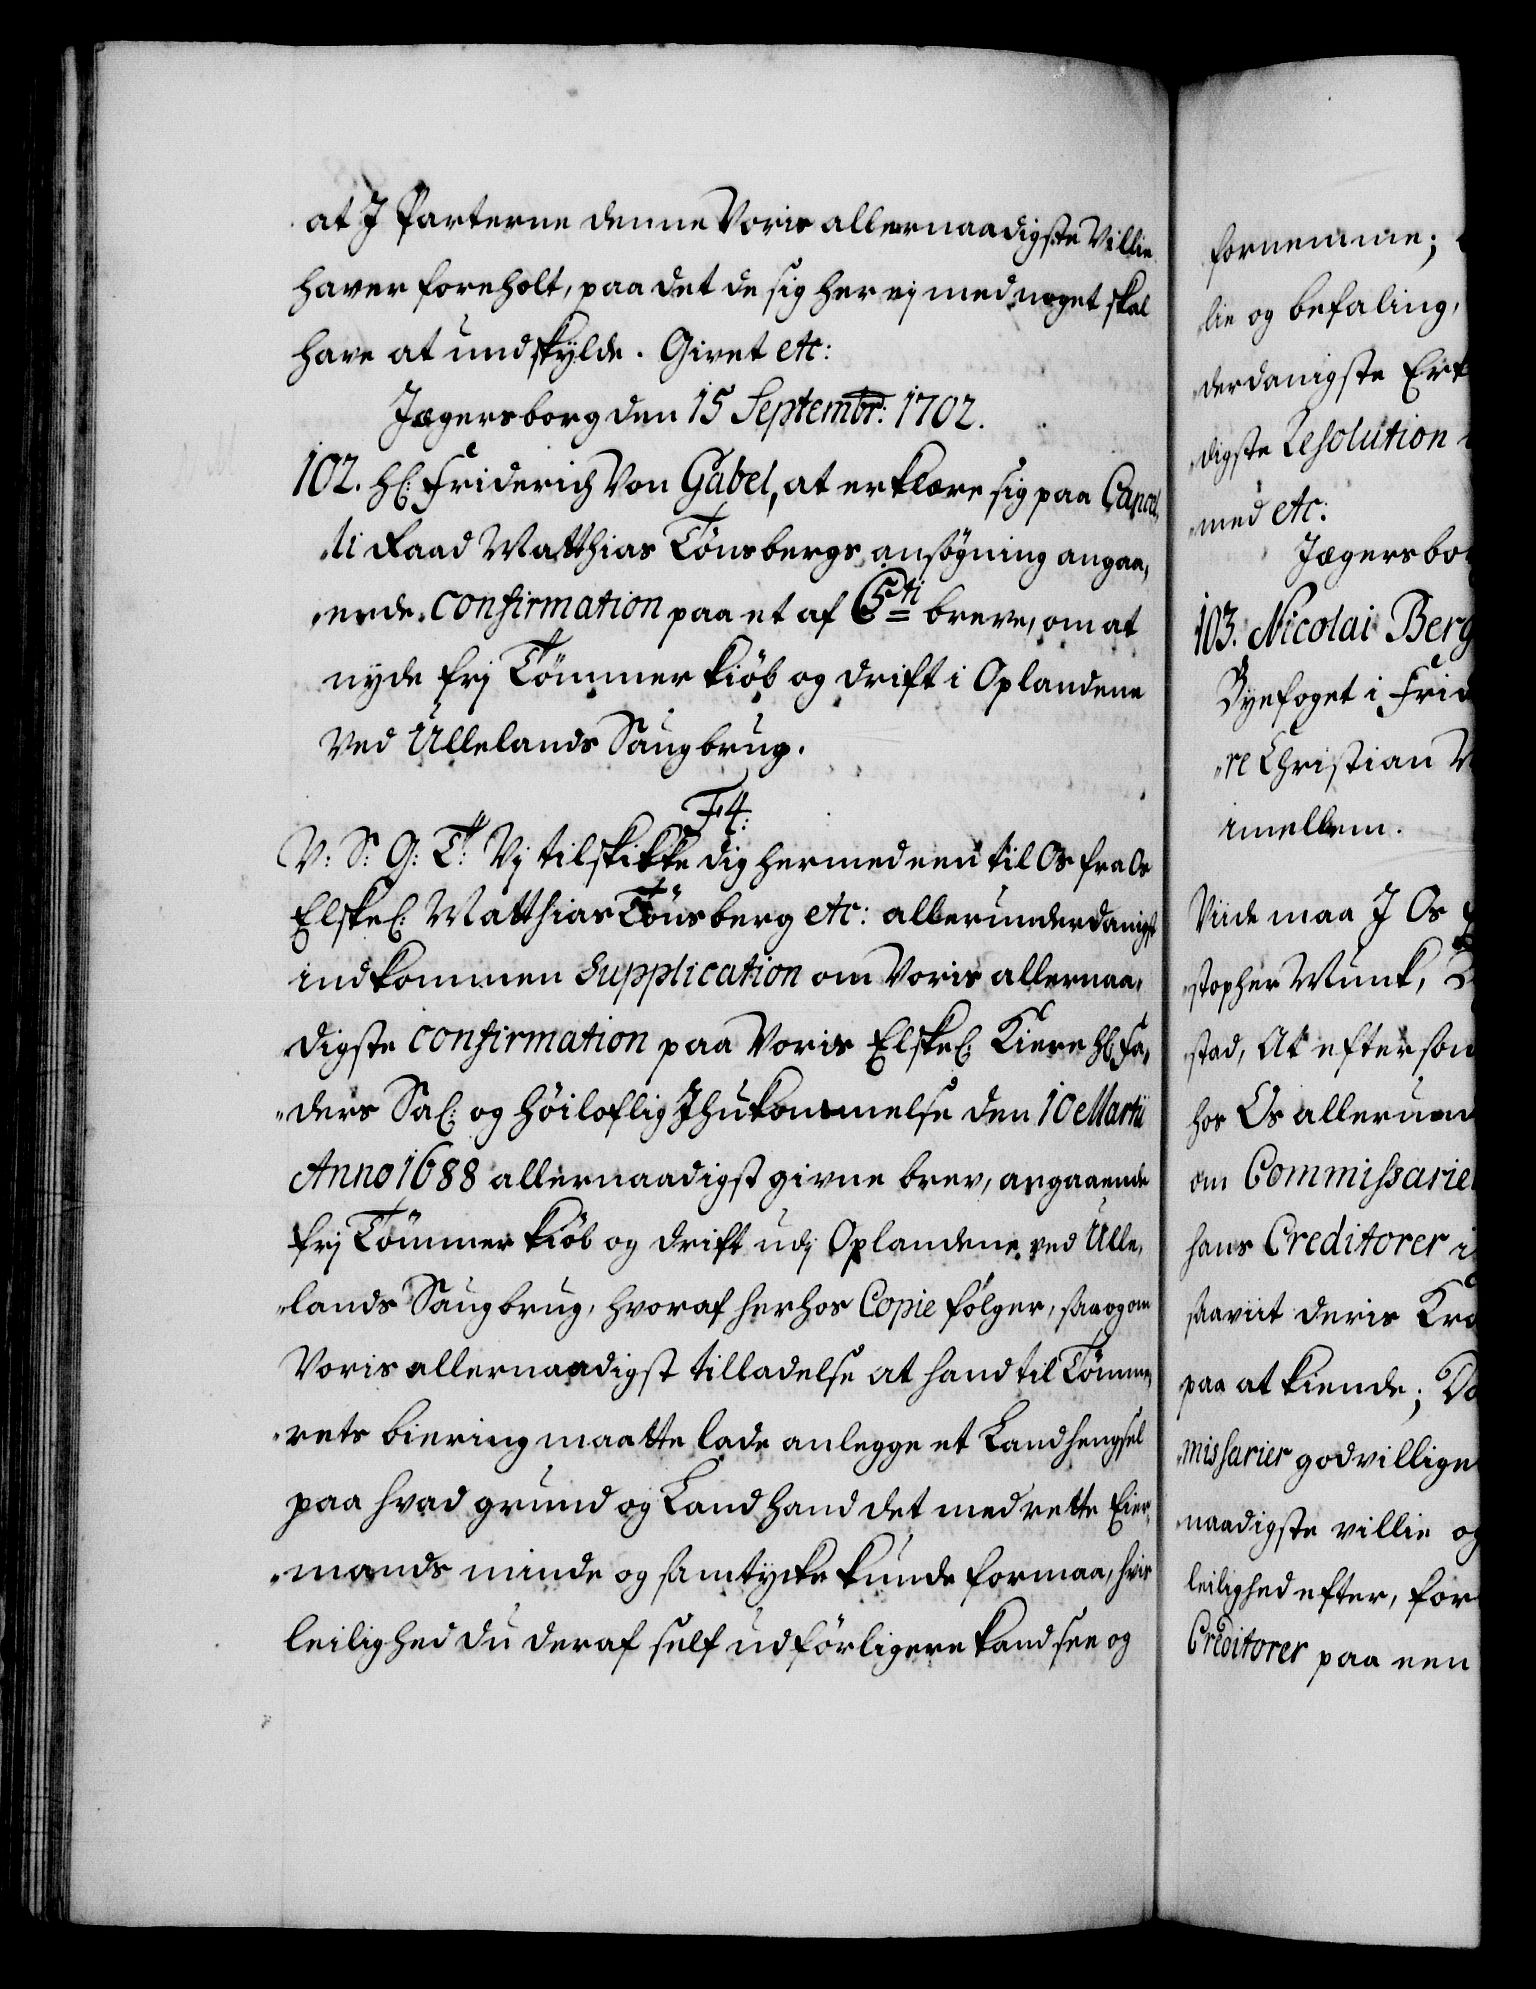 at J Parterne denne Voris allernaadigste Villie
haver foreholt, paa det de sig her ej med noget skal
have at undskylde. Givet etc:
Jægersborg den 15 Septembr: 1702.
102. H: Friderich Von Gabel, at erklære sig paa Cancel„
„li Raad Matthias Tönsbergs ansögning angaa„
„ende confirmation paa et af C 5ti breve, om at
nyde frj Tömmer kiöb og drift i Oplandene
Ved Ullelands Saugbrug.
F4:
V: S: G: T: Vj tilskikke dig hermed een til Os fra Os
Elskel: Matthias Tönsberg etc: allerunderdanigst
indkommen Supplication om Voris allernaa„
digste confirmation paa Voris Elskel: Kiere H: Fa„
„ders Sal: og Höiloflig Jhukommelse den 10 Martii
Anno 1688 allernaadigst givne brev, angaaende
frj Tömmer kiöb og drift udj Oplandene ved Ulle„
„lands Saugbrug, hvoraf herhos Copie fölger, saa og om
Voris allernaadigst tilladelse at hand til Tömme„
„rets biering maatte lade anlegge et Landhengsel
paa hvad grund og Land hand det med rette Eier„
„mands minde og samtycke kunde formaa, hvis
leilighed du deraf self udförligere kand see og
fornemme;
lie og befaling,
derdanigste Erk
digste Resolution
med etc:
Jægersbor
103. Nicolai Berg
Byefoget i Frid
„re Christian
imellem.
Viide maa J Os
„stopher Munk,
„stad, At eftersom
hos Os allerund
om Commissarie
hans Creditorer i
saavit deris Kra
paa at kiende; Da
„missarier godvillige
„naadigste villie og
leilighed efter, for
Creditorer paa een